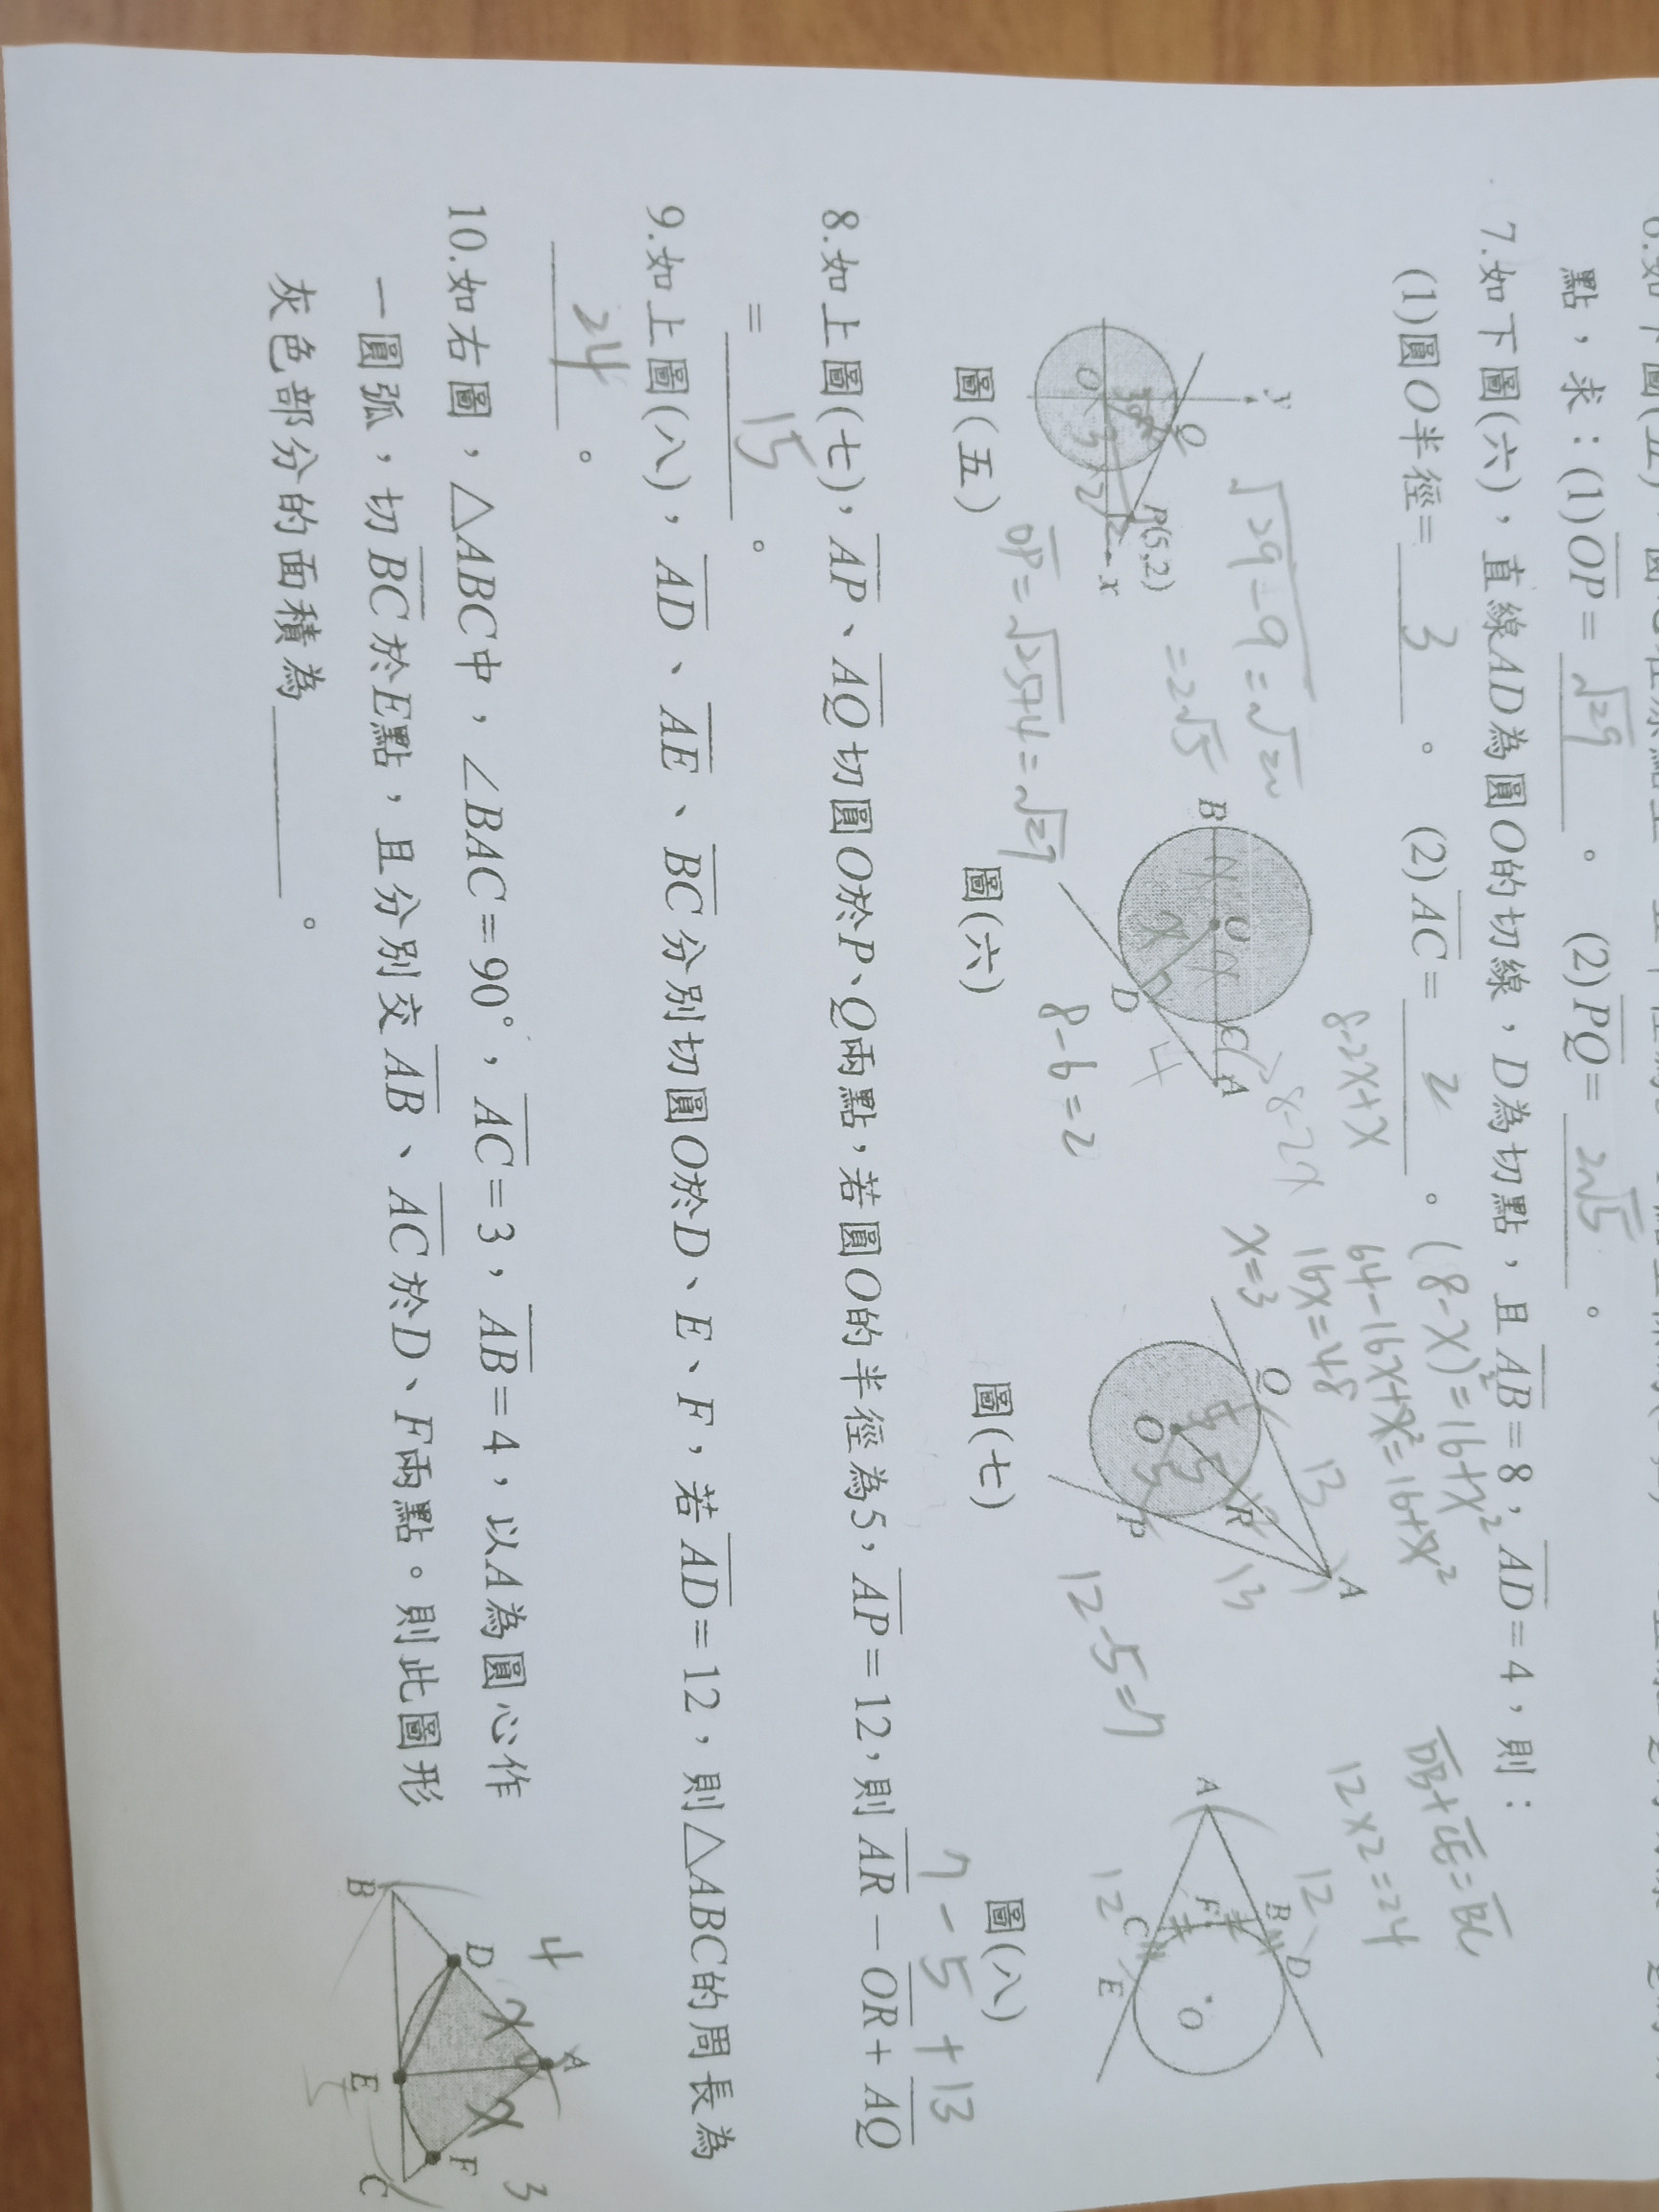 點，求：(1)OP= √29 。 (2)PQ= 2√5 。
7.如下圖(六)，直線AD為圓O的切線，D為切點，且AB=8，AD=4，則：
(1)圓O半徑= 3 。 (2)AC= 2 。
(8-x)²=16+x²
64-16x+x²=16+x²
16x=48
x=3
8-2x+x
8-2x
DB+CE=BC
12×2=24
√29-9=√20
=2√5
OP=√25+4=√29
y
Q
O
5
2
P(5,2)
x
圖(五)
B
x
O
x
C
A
x
D
4
8-6=2
圖(六)
Q
13
A
O
5
5
R
P
13
12-5=7
圖(七)
A
12
B
D
F
C
12
E
O
圖(八)
7-5+13
8.如上圖(七)，AP、AQ切圓O於P、Q兩點，若圓O的半徑為5，AP=12，則AR-OR+AQ
= 15 。
9.如上圖(八)，AD、AE、BC分別切圓O於D、E、F，若AD=12，則△ABC的周長為
24 。
10.如右圖，△ABC中，∠BAC=90°，AC=3，AB=4，以A為圓心作
一圓弧，切BC於E點，且分別交AB、AC於D、F兩點。則此圖形
灰色部分的面積為 。
4
A
3
D
x
x
F
B
E
C